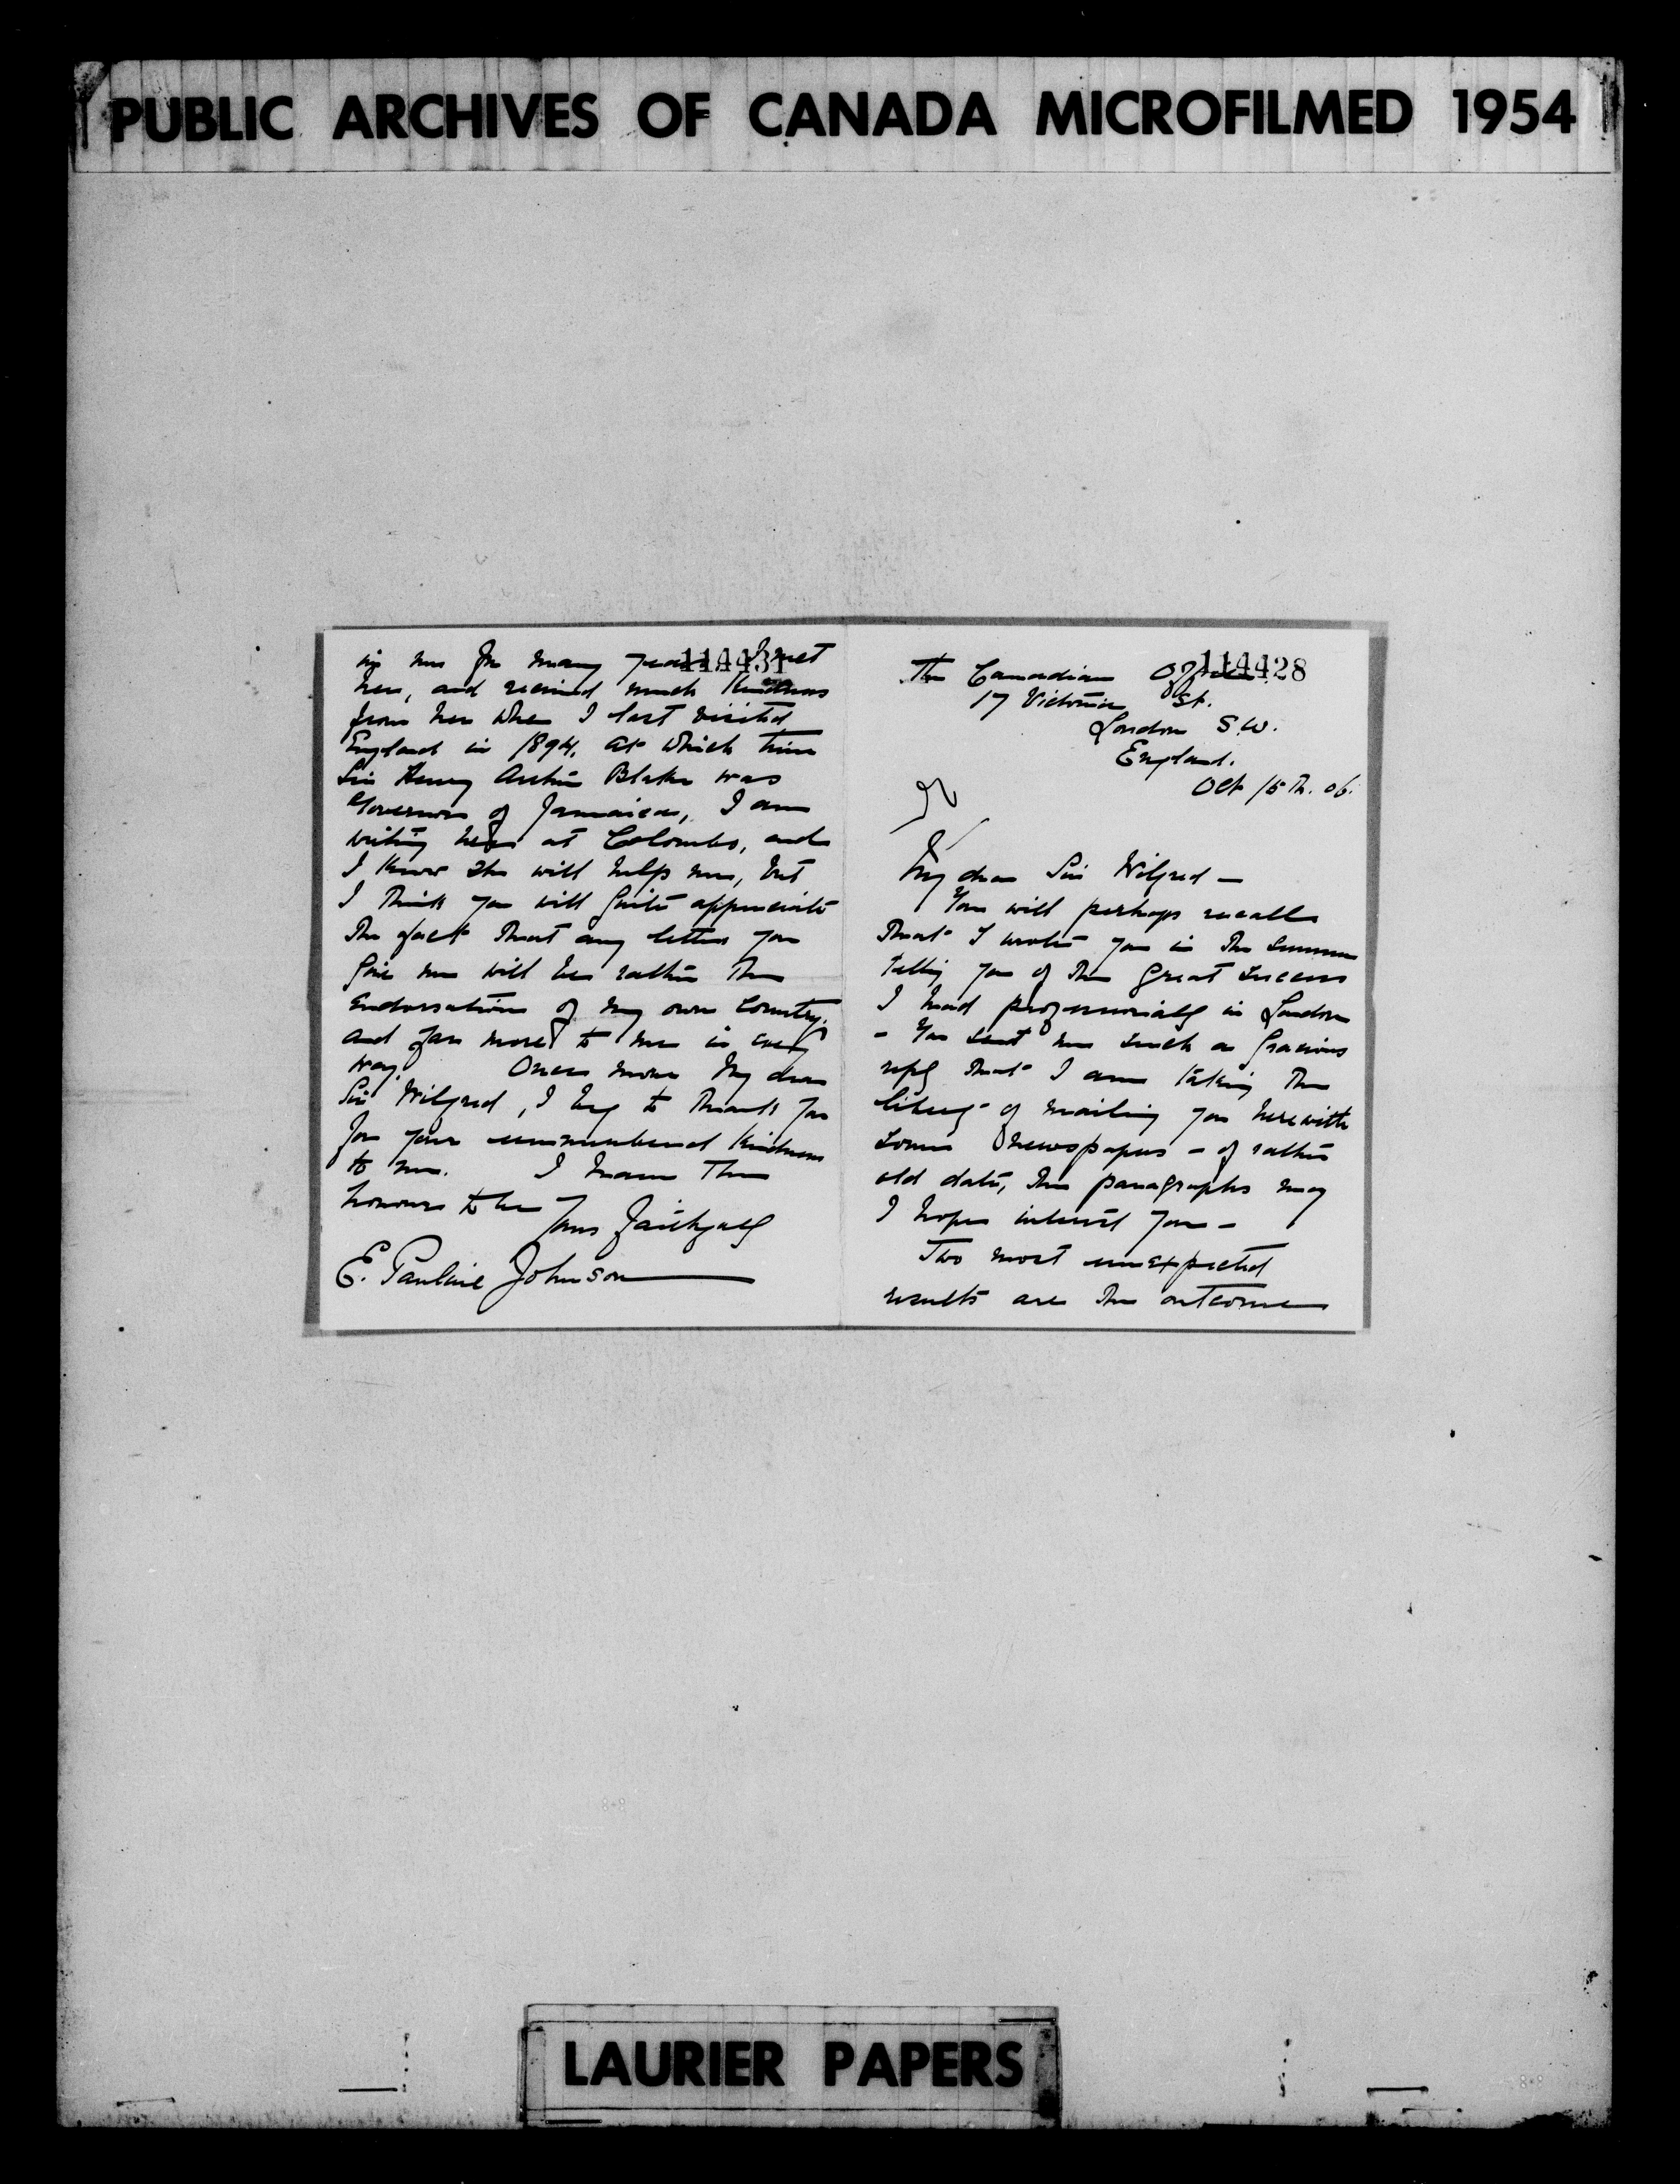 PUBLIC ARCHIVES OF CANADA MICROFILMED 1954
114431
me for many years I met
her, and received much kindness
from her when I last visited
England in 1894, at which time
Sir Henry Arthur Blake was
Governor of Jamaica, I am
writing her at Colombo, and
I know she will help me, but
I think you will quite appreciate
the fact that any letter you
give me will be rather the
endorsation of my own country,
and far more to me in every
way. Once more my dear
Sir Wilfred, I beg to thank you
for your unnumbered kindness
to me. I have the
honour to be
Yours faithfully
E. Pauline Johnson
114428
The Canadian Office
17 Victoria St.
London S.W.
England.
Oct 15th. 06.
My dear Sir Wilfred —
You will perhaps recall
that I wrote you in the summer
telling you of the great success
I had professionally in London
- You sent me such a gracious
reply that I am taking the
liberty of mailing you herewith
some newspapers - of rather
old date, the paragraphs may
I hope interest you -
Two most unexpected
results are the outcome
LAURIER PAPERS